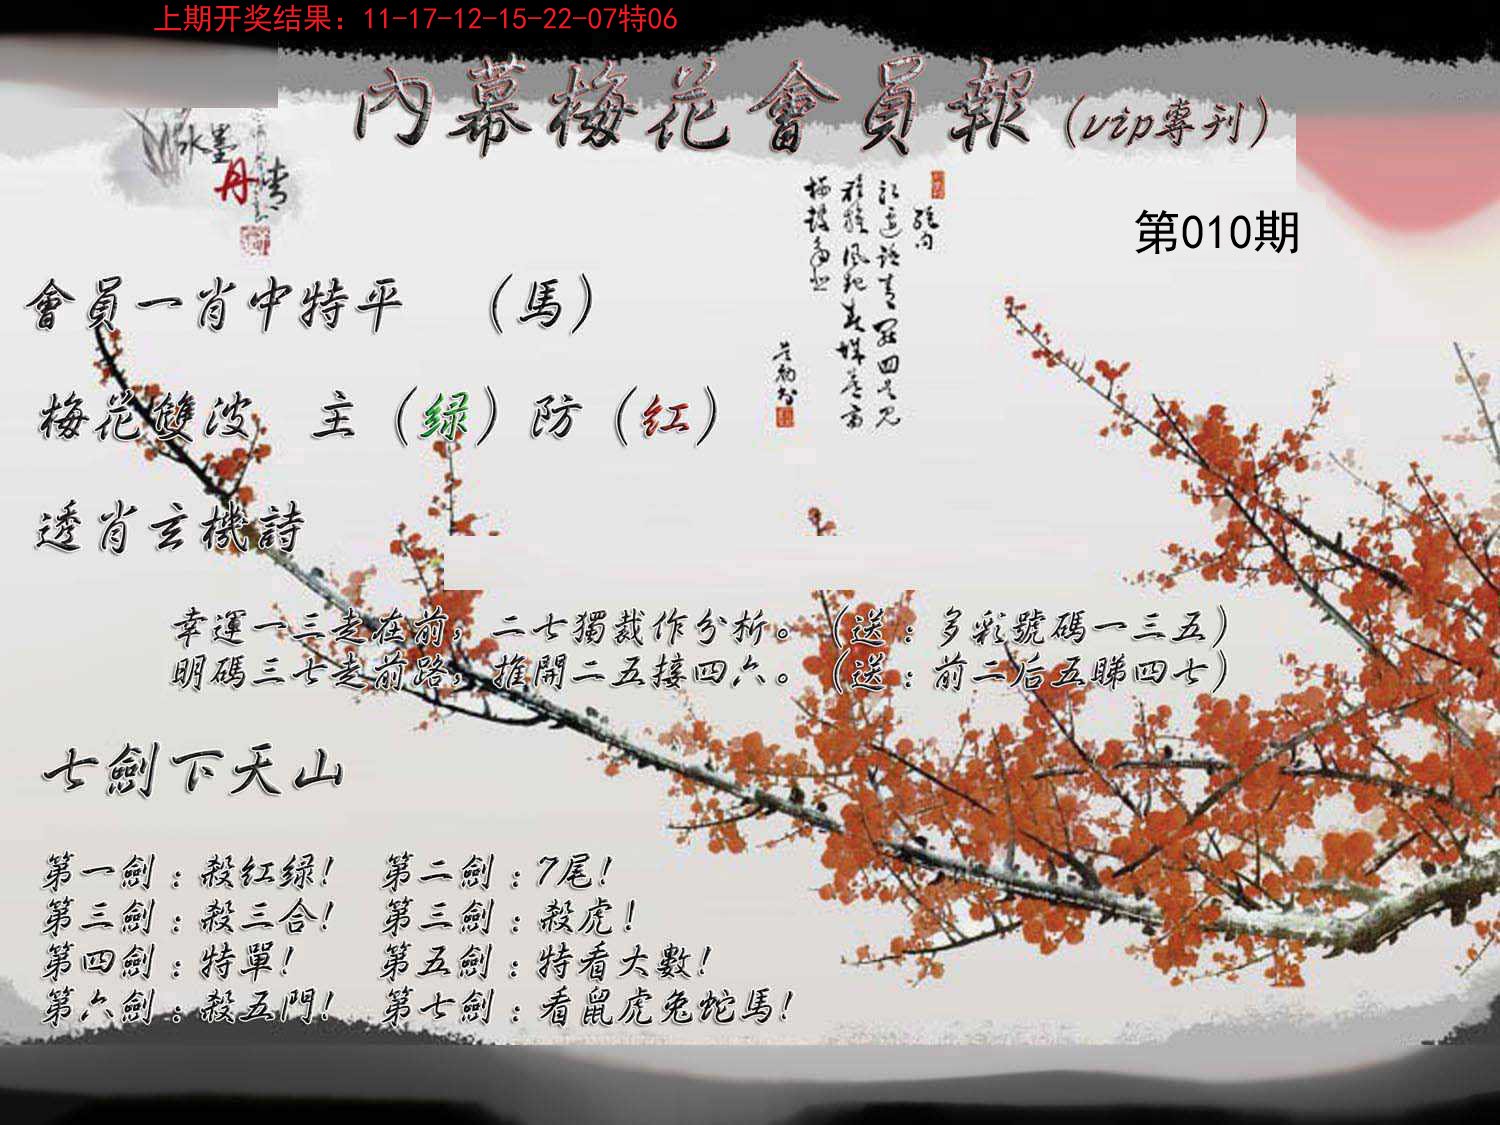 上期开奖结果：11-17-12-15-22-07特06
內幕梅花會員報（vip專刊）
水墨
丹青
第010期
會員一肖中特平　（馬）
梅花雙波　主（绿）防（红）
透肖玄機詩
幸運一三走在前，二七獨裁作分析。（送：多彩號碼一三五）
明碼三七走前路，推開二五接四六。（送：前二后五睇四七）
七劍下天山
第一劍：殺红绿！　第二劍：7尾！
第三劍：殺三合！　第三劍：殺虎！
第四劍：特單！　第五劍：特看大數！
第六劍：殺五門！　第七劍：看鼠虎兔蛇馬！